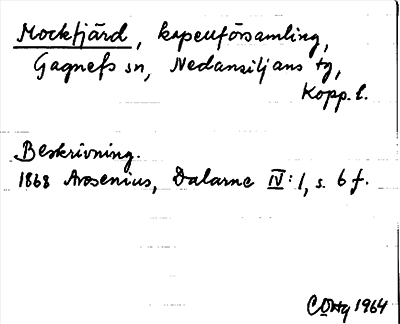 Mockfjärd, kapellförsamling,
Gagnefs sn, Nedansiljans tg,
Kopp. l.
Beskrivning.
1868 Arosenius, Dalarne IV:1, s. 6 f.
1964